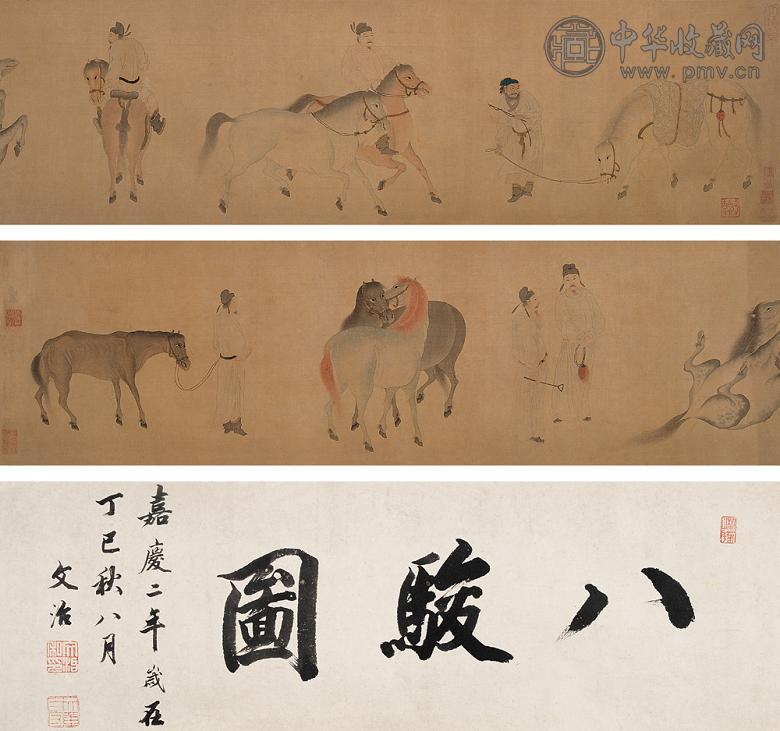 中华收藏网
www.pmv.cn
八駿圖
嘉慶二年歲在
丁巳秋八月
文治